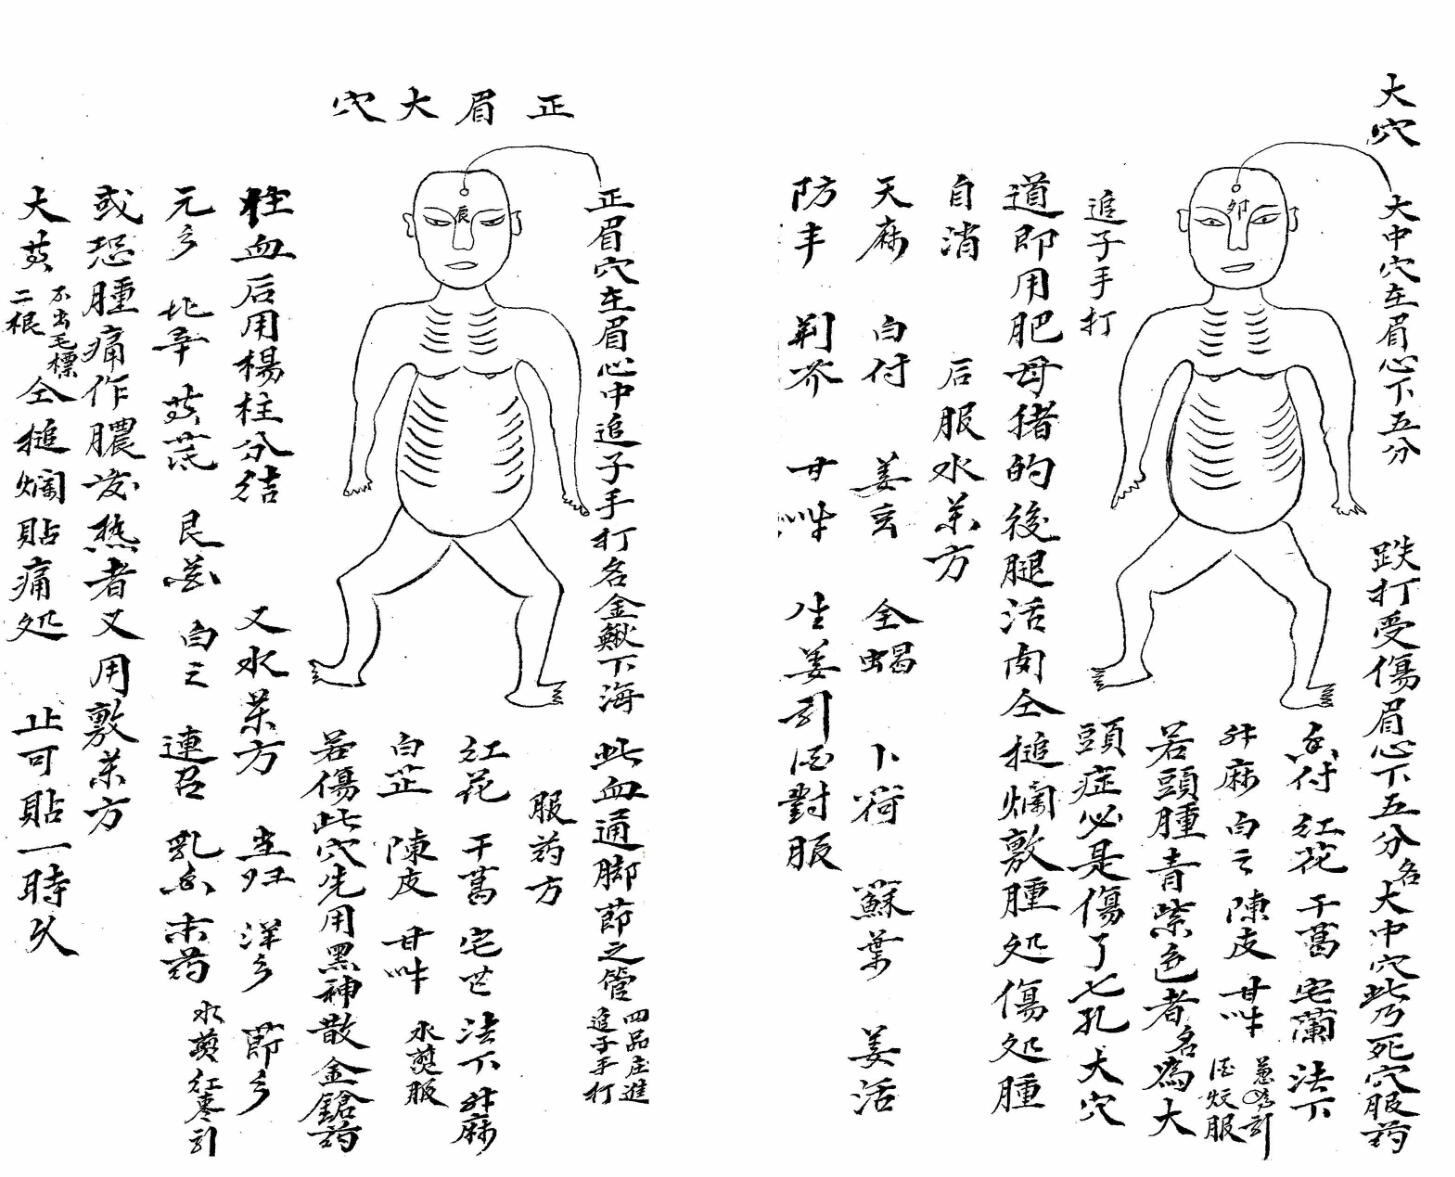 大穴
大中穴在眉心下五分
跌打受傷眉心下五分名大中穴此乃死穴服药
卯
香付 紅花 干葛 宅蘭 法下
升麻 白云 陳皮 甘草 葱 引 酒炆服
若頭腫青紫色者名為大
頭症必是傷了七孔大穴
追子手打
道即用肥母猪的後腿活肉仝搥爛敷腫処傷処腫
自消 后服水茶方
天麻 白付 姜玄 全蝎 卜荷 蘇葉 姜活
防丰 荆芥 甘草 生姜引 酒對服
正眉大穴
正眉穴在眉心中追子手打名金鰍下海 此血通脚節之管 四品庄進 追子手打
辰
服药方
紅花 干葛 宅世 法下 升麻
白芷 陳皮 甘草 水煎服
若傷此穴先用黑神散金鎗药
柱血后用楊柱分结 又水茶方 当归 洋 節
元 北辛 黄芪 艮花 白云 連召 乳香 末药 水煎 红枣引
或恐腫痛作膿发热者又用敷茶方
大黄 不出毛標二根 仝搥爛貼痛処 止可貼一時久